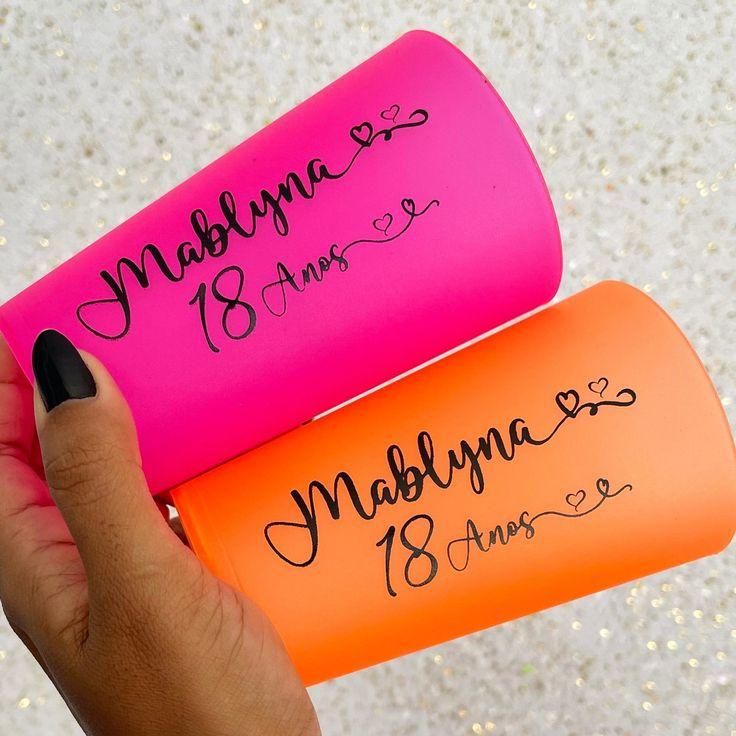 Mablyna
18 Anos
Mablyna
18 Anos